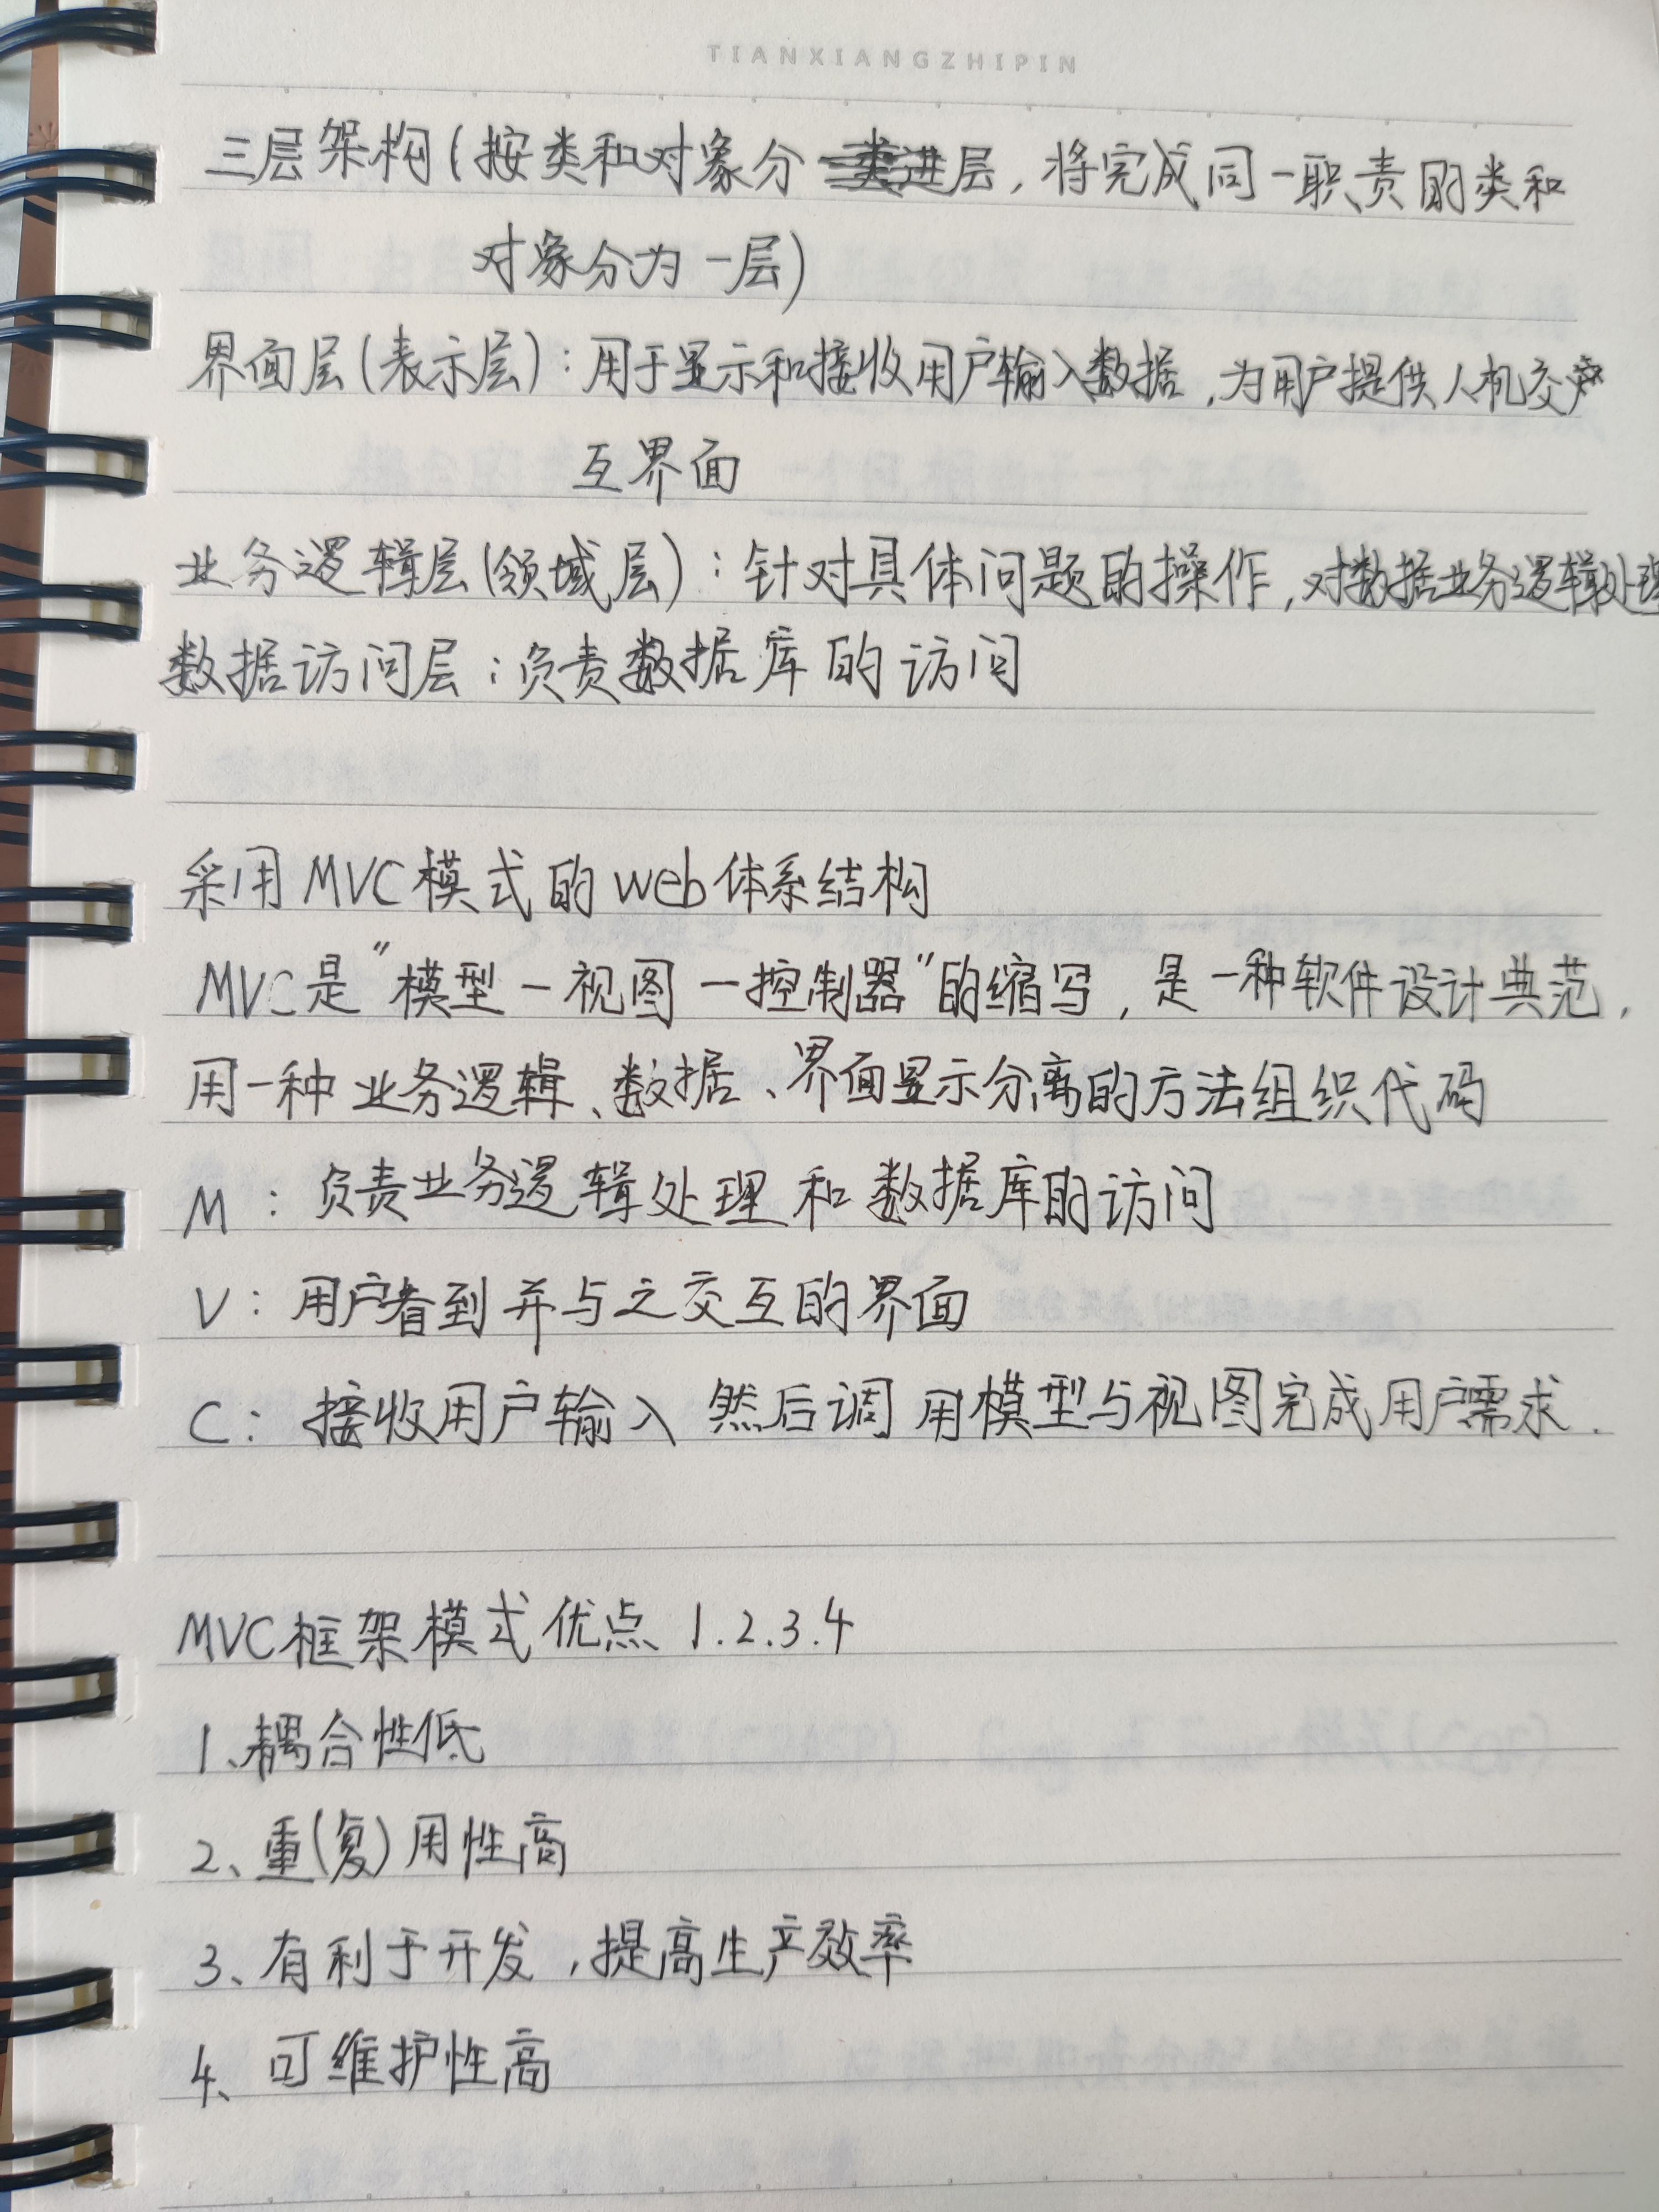 TIANXIANGZHIPIN
三层架构(按类和对象分层,将完成同一职责的类和
对象分为一层)
界面层(表示层):用于显示和接收用户输入数据,为用户提供人机交
互界面
业务逻辑层(领域层):针对具体问题的操作,对数据业务逻辑处理
数据访问层:负责数据库的访问
采用MVC模式的web体系结构
MVC是"模型-视图-控制器"的缩写,是一种软件设计典范,
用一种业务逻辑、数据、界面显示分离的方法组织代码
M:负责业务逻辑处理和数据库的访问
V:用户看到并与之交互的界面
C:接收用户输入然后调用模型与视图完成用户需求.
MVC框架模式优点 1.2.3.4
1、耦合性低
2、重(复)用性高
3、有利于开发,提高生产效率
4、可维护性高